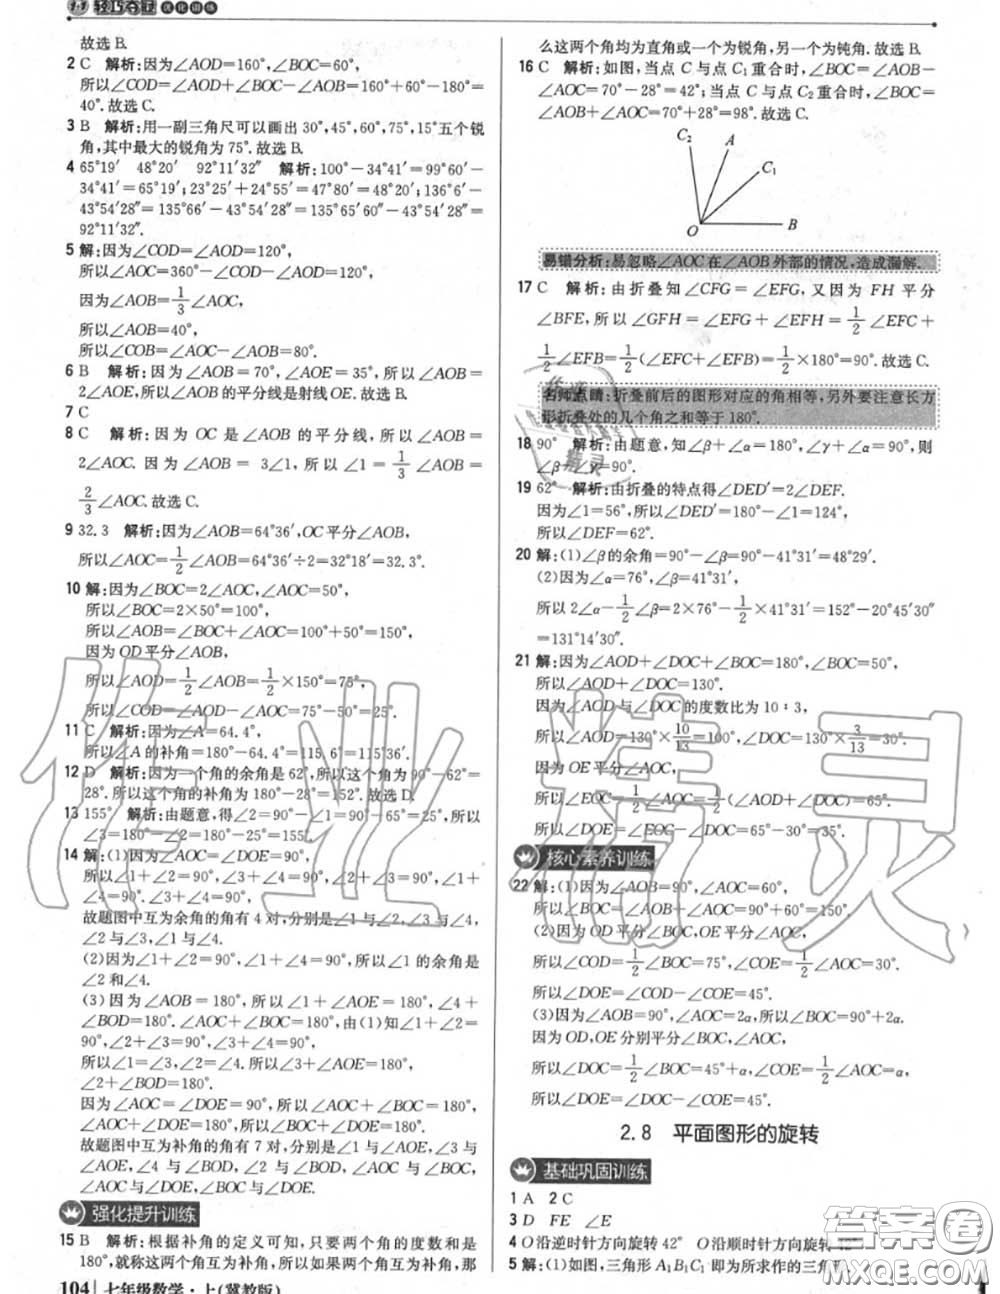 1+1 轻巧夺冠 优化训练
故选 B.
2 C 解析:因为∠AOD=160°,∠BOC=60°,
所以∠COD=∠AOD+∠BOC-∠AOB=160°+60°-180°=
40°.故选 C.
3 B 解析:用一副三角尺可以画出 30°,45°,60°,75°,15°五个锐
角,其中最大的锐角为 75°.故选 B.
4 65°19′ 48°20′ 92°11′32″ 解析:100°-34°41′=99°60′-
34°41′=65°19′;23°25′+24°55′=47°80′=48°20′;136°6′-
43°54′28″=135°66′-43°54′28″=135°65′60″-43°54′28″=
92°11′32″.
5 解:因为∠COD=∠AOD=120°,
所以∠AOC=360°-∠COD-∠AOD=120°,
因为∠AOB=1/3∠AOC,
所以∠AOB=40°,
所以∠BOC=∠AOC-∠AOB=80°.
6 B 解析:因为∠AOB=70°,∠AOE=35°,所以∠AOB=
2∠AOE,所以∠AOB的平分线是射线OE.故选 B.
7 C
8 C 解析:因为 OC 是∠AOB 的平分线,所以∠AOB=
2∠AOC.因为∠AOB= 3∠1,所以∠1=1/3∠AOB=
2/3∠AOC.故选 C.
9 32.3 解析:因为∠AOB=64°36′,OC平分∠AOB,
所以∠AOC=1/2∠AOB=64°36′÷2=32°18′=32.3°.
10 解:因为∠BOC=2∠AOC,∠AOC=50°,
所以∠BOC=2×50°=100°,
所以∠AOB=∠BOC+∠AOC=100°+50°=150°.
因为 OD平分∠AOB,
所以∠AOD=1/2∠AOB=1/2×150°=75°,
所以∠COD=∠AOD-∠AOC=75°-50°=25°.
11 C 解析:因为∠A=64.4°,
所以∠A的补角=180°-64.4°=115.6°=115°36′.
12 D 解析:因为一个角的余角是62°,所以这个角为90°-62°=
28°.所以这个角的补角为180°-28°=152°.故选 D.
13 155° 解析:由题意,得∠2=90°-∠1=90°-65°=25°,所以
∠3=180°-∠2=180°-25°=155°.
14 解:(1)因为∠AOC=∠DOE=90°,
所以∠1+∠2=90°,∠2+∠3=90°,∠3+∠4=90°,∠1+
∠4=90°.
故题图中互为余角的角有 4 对,分别是∠1 与∠2,∠3 与∠4,
∠2 与∠3,∠1 与∠4.
(2)因为∠1+∠2=90°,∠1+∠4=90°,所以∠1的余角是
∠2 和∠4.
(3)因为∠AOB=180°,所以∠1+∠AOE=180°,∠4+
∠BOD=180°.∠AOC+∠BOC=180°,由(1)知∠1+∠2=
90°,∠2+∠3=90°,∠3+∠4=90°,
所以∠1=∠3,∠2=∠4,所以∠3+∠AOE=180°,
∠2+∠BOD=180°.
因为∠AOC=∠DOE=90°,所以∠AOC+∠BOC=180°,
所以∠DOE+∠BOC=180°,∠AOC+∠DOE=180°.
故题图中互为补角的角有 7 对,分别是∠AOC 与∠BOC,
∠4 与∠BOD,∠1 与∠AOE,∠3 与∠AOE,∠2 与
∠BOD,∠AOC 与∠DOE,∠BOC 与∠DOE.
强化提升训练
15 B 解析:根据补角的定义可知,只要两个角的度数和是
180°,就称这两个角互为补角,所以如果两个角互为补角,那
104 七年级数学·上(冀教版)
么这两个角均为直角或一个为锐角,另一个为钝角.故选 B.
16 C 解析:如图,当点 C 与点 C₁重合时,∠BOC=∠AOB-
∠AOC=70°-28°=42°;当点 C 与点 C₂重合时,∠BOC=
∠AOB+∠AOC=70°+28°=98°.故选 C.
C₂ A
C₁
O B
易错分析:易忽略∠AOC在∠AOB外部的情况,造成漏解.
17 C 解析:由折叠知∠CFG=∠EFG,又因为 FH 平分
∠BFE,所以∠GFH=∠EFG+∠EFH=1/2∠EFC+
1/2∠EFB=1/2(∠EFC+∠EFB)=1/2×180°=90°.故选 C.
名师点睛:折叠前后的图形对应的角相等,另外要注意长方
形折叠处的几个角之和等于180°.
18 90° 解析:由题意,知∠β+∠α=180°,∠γ+∠α=90°,则
∠β-∠γ=90°.
19 62° 解析:由折叠的特点得∠DED′=2∠DEF.
因为∠1=56°,所以∠DED′=180°-∠1=124°,
所以∠DEF=62°.
20 解:(1)∠β的余角=90°-∠β=90°-41°31′=48°29′.
(2)因为∠α=76°,∠β=41°31′,
所以 2∠α-1/2∠β=2×76°-1/2×41°31′=152°-20°45′30″
=131°14′30″.
21 解:因为∠AOD+∠DOC+∠BOC=180°,∠BOC=50°,
所以∠AOD+∠DOC=130°.
因为∠AOD与∠DOC的度数比为 10:3,
所以∠AOD=130°×10/13=100°,∠DOC=130°×3/13=30°.
因为 OE平分∠AOC,
所以∠EOC=1/2∠AOC=1/2(∠AOD+∠DOC)=65°.
所以∠DOE=∠EOC-∠DOC=65°-30°=35°.
核心素养训练
22 解:(1)因为∠AOB=90°,∠AOC=60°,
所以∠BOC=∠AOB+∠AOC=90°+60°=150°.
(2)因为 OD平分∠BOC,OE平分∠AOC,
所以∠COD=1/2∠BOC=75°,∠COE=1/2∠AOC=30°.
所以∠DOE=∠COD-∠COE=45°.
(3)因为∠AOB=90°,∠AOC=2α,所以∠BOC=90°+2α.
因为 OD,OE 分别平分∠BOC,∠AOC,
所以∠DOC=1/2∠BOC=45°+α,∠COE=1/2∠AOC=α,
所以∠DOE=∠DOC-∠COE=45°.
2.8 平面图形的旋转
基础巩固训练
1 A 2 C
3 D FE ∠E
4 O 沿逆时针方向旋转 42° O 沿顺时针方向旋转 42°
5 解:(1)如图,三角形 A₁B₁C₁ 即为所求作的三角形.
作业精灵
答案圈
MXQE.COM